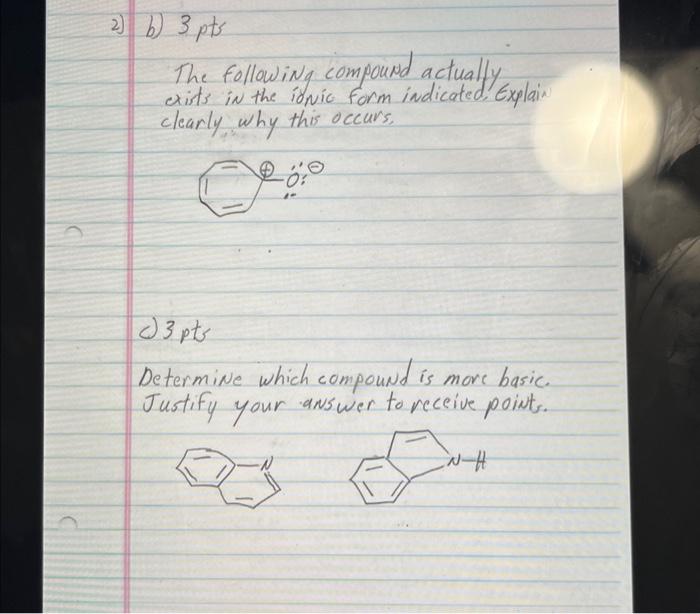 2) b) 3 pts
The following compound actually
exists in the ionic form indicated. Explain
clearly why this occurs.
⊕ :Ö: ⊖
c) 3 pts
Determine which compound is more basic.
Justify your answer to receive points.
N N-H